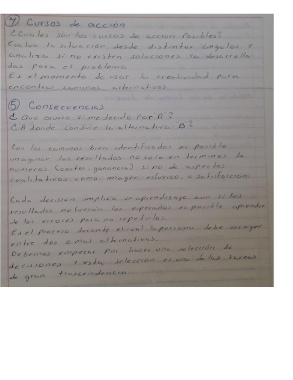 4) Cursos de acción
¿Cuáles son los cursos de acción posibles?
Evalua la situación desde distintos ángulos y
analiza si no existen soluciones ya desarrolla
das para el problema.
Es el momento de usar la creatividad para
encontrar caminos alternativos.
5) Consecuencias
¿Qué ocurre si me decido por A?
¿A donde conduce la alternativa B?
Con los caminos bien identificados es posible
imaginar los resultados no solo en términos de
números (costos, ganancias) si no de aspectos
cualitativos como imagen, esfuerzo, o satisfacción.
Cada decisión implica un aprendizaje aun si los
resultados no fueron los esperados es posible aprender
de los errores para no repetirlos.
Es el proceso durante el cual la persona debe escoger
entre dos o mas alternativas.
Debemos empezar por hacer una selección de
decisiones y esta selección es una de las tareas
de gran trascendencia.